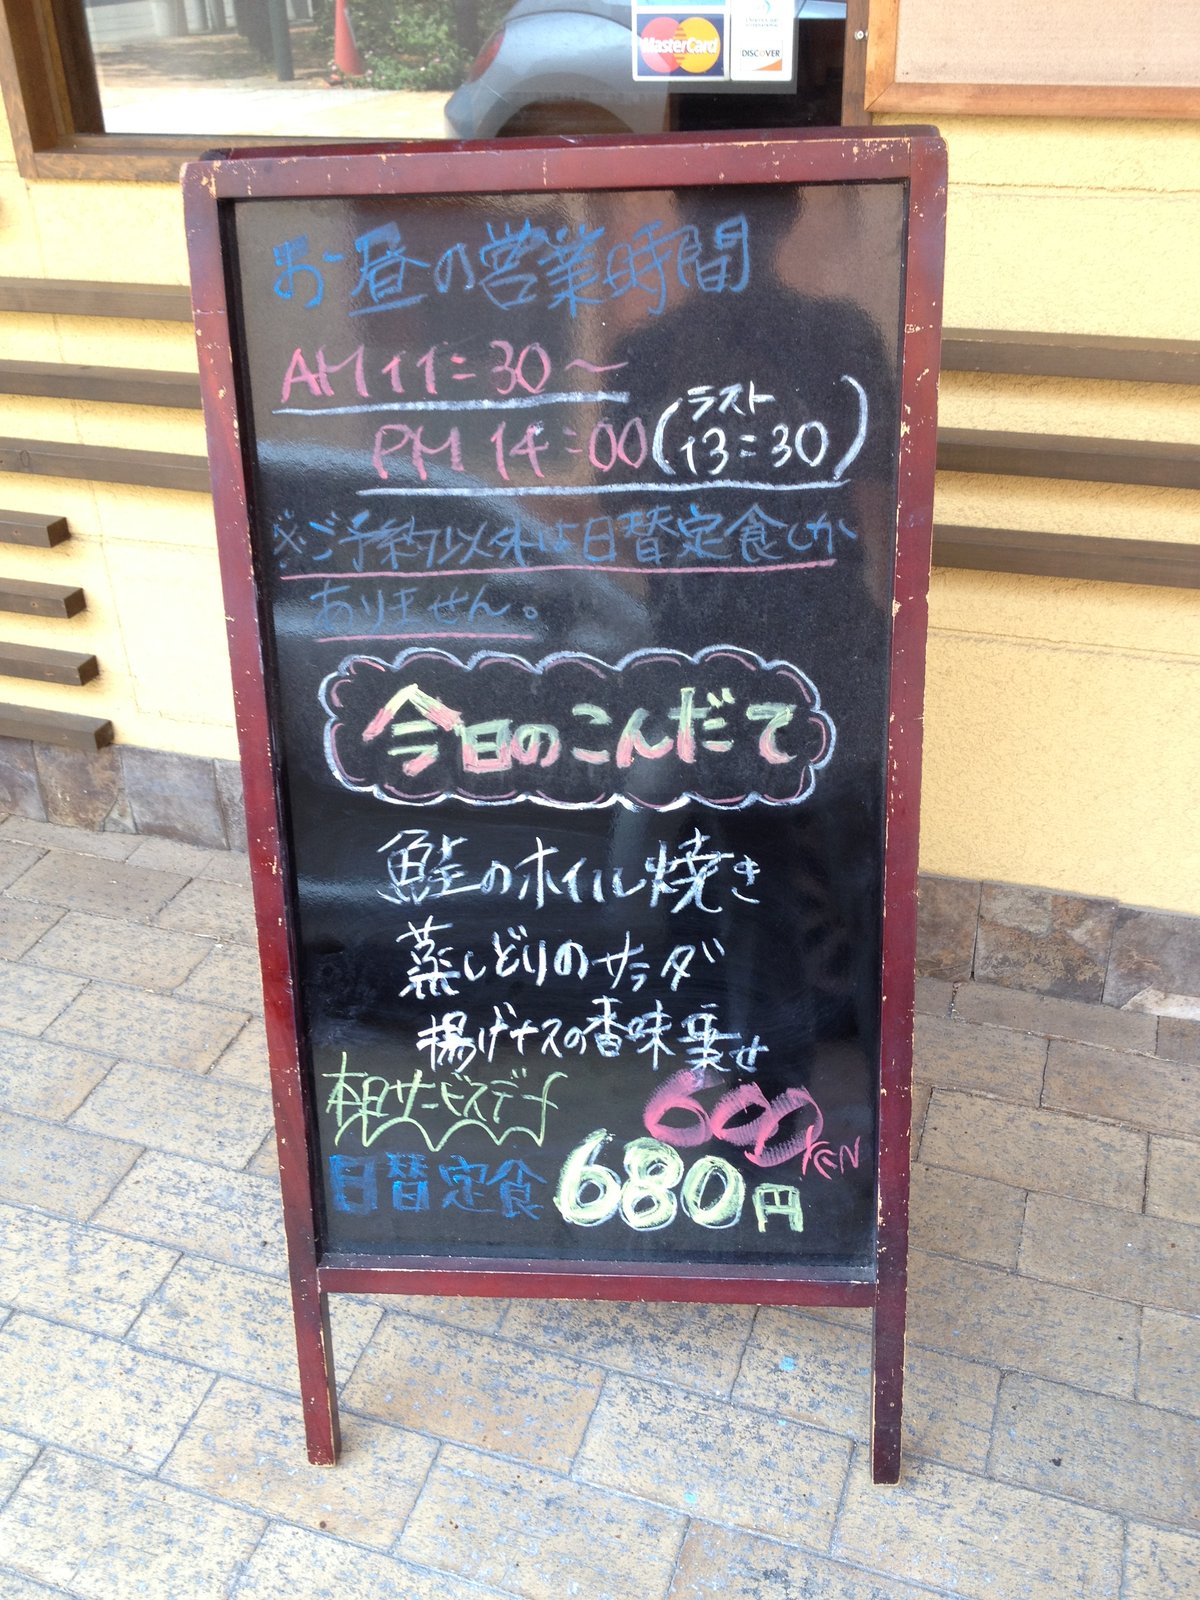 MasterCard
DISCOVER
お昼の営業時間
AM 11:30〜
PM 14:00(ラスト 13:30)
※ご予約以外は日替定食しか
ありません。
今日のこんだて
鮭のホイル焼き
蒸しどりのサラダ
揚げナスの香味乗せ
本日サービスデー 600YEN
日替定食 680円